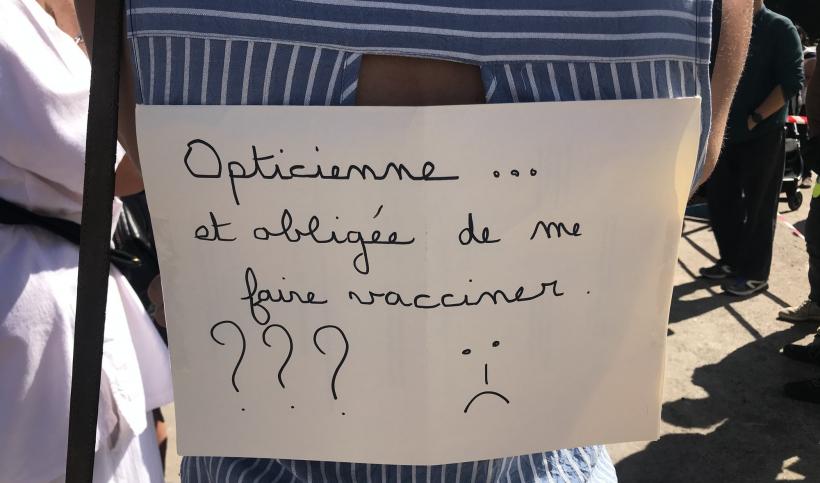 Opticienne ...
et obligée de me
faire vacciner.
???